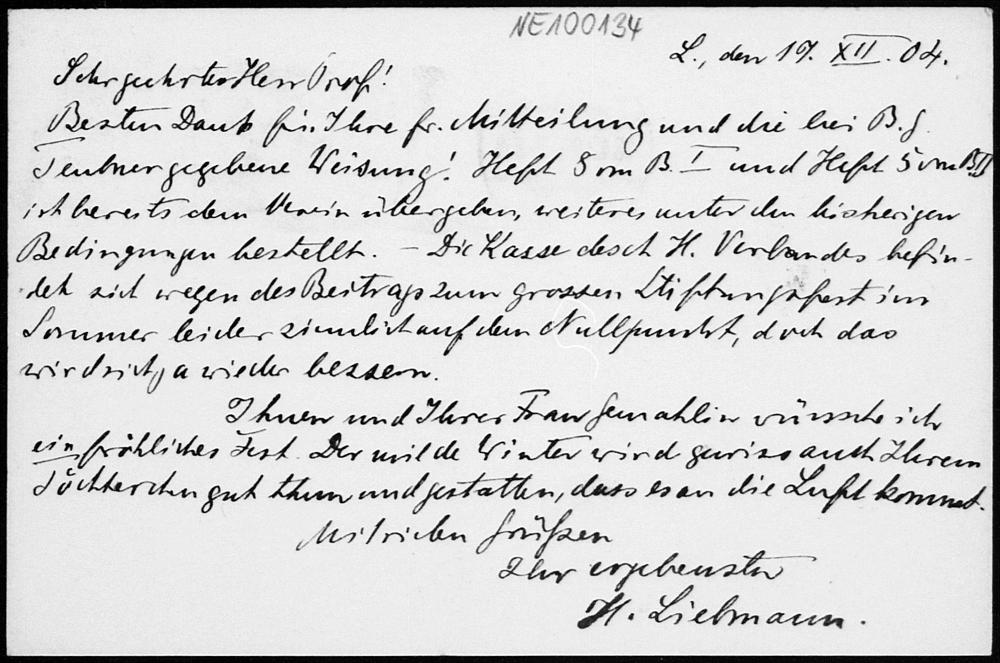 NE100134
L., den 19. XII. 04.
Sehr geehrter Herr Prof!
Besten Dank für Ihre fr. Mitteilung und die bei B. G.
Teubner gegebene Weisung! Heft 8 vom B. I und Heft 5 vom B II
ist bereits dem Verein übergeben, weiteres unter den bisherigen
Bedingungen bestellt. – Die Kasse des H. Verbandes befin-
det sich wegen des Beitrags zum grossen Stiftungsfest im
Sommer leider ziemlich auf dem Nullpunkt, doch das
wird sich ja wieder bessern.
Ihnen und Ihrer Frau Gemahlin wünsche ich
ein fröhliches Fest. Der milde Winter wird gewiss auch Ihrem
Töchterchen gut thun und gestatten, dass es an die Luft kommt.
Mit vielen Grüßen
Ihr ergebenster
H. Liebmann.